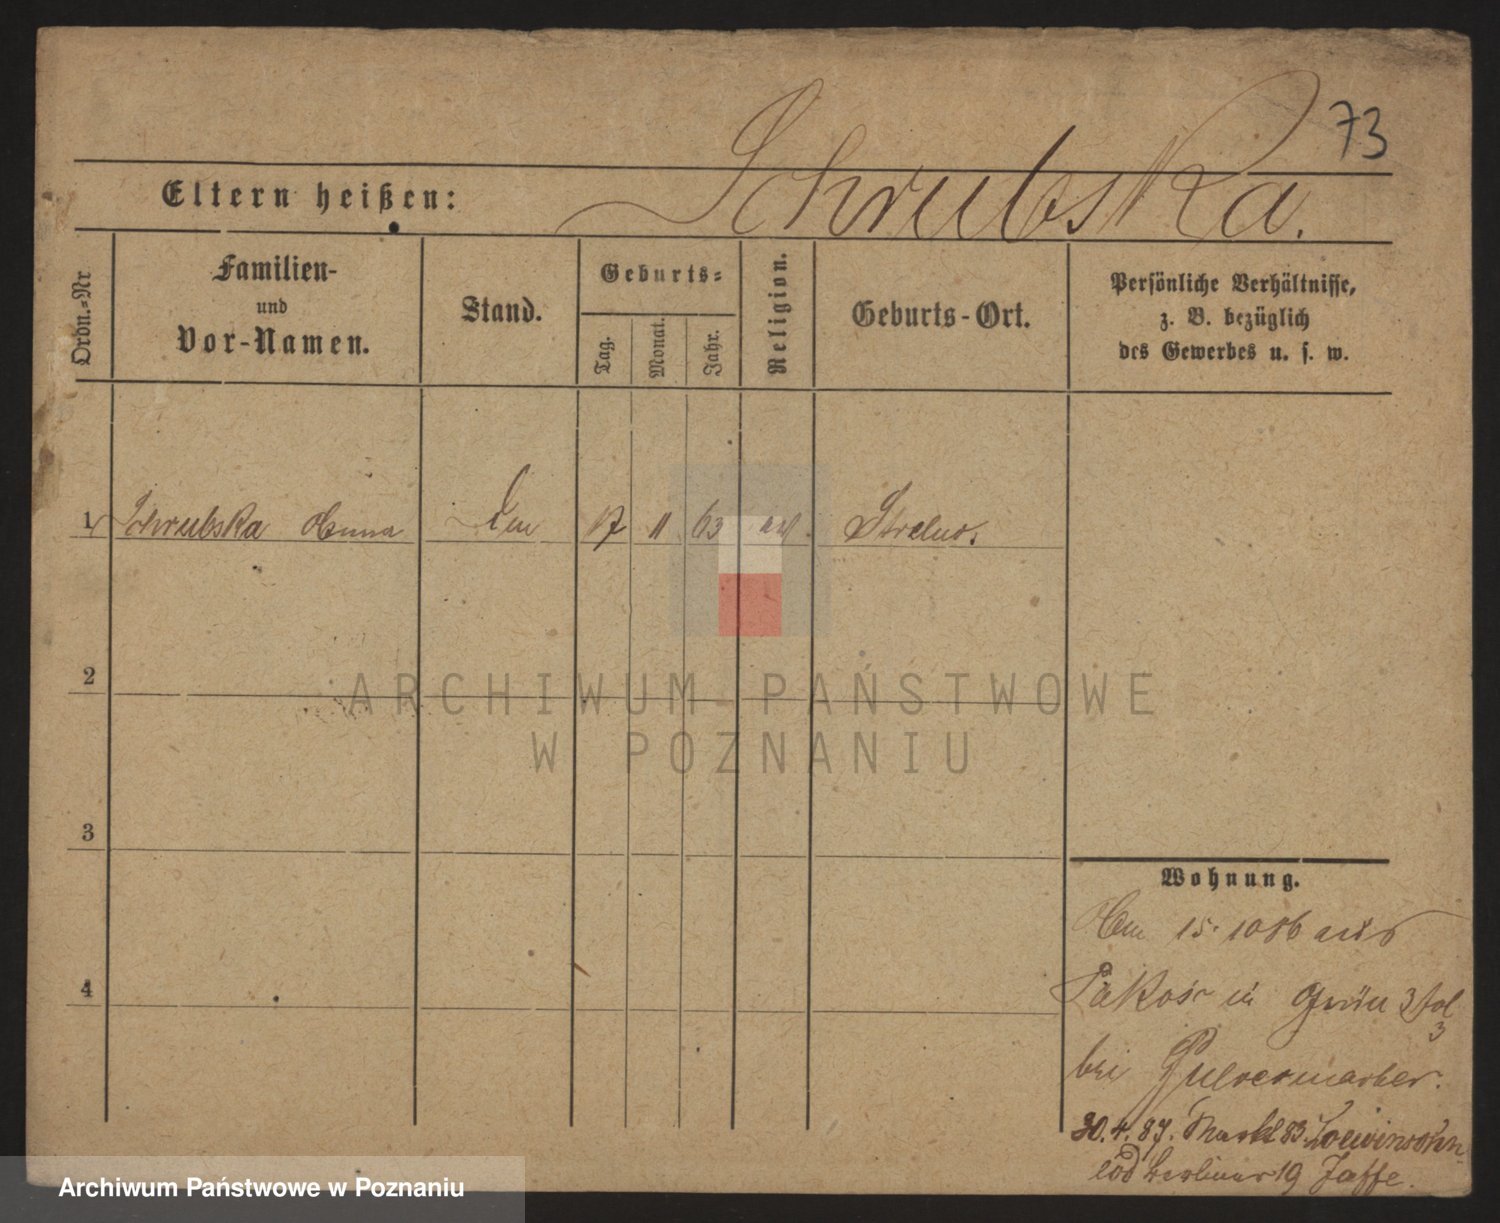 73
Schrubska.
Eltern heißen:
Ordn.-Nr
Familien-
und
Vor-Namen.
Stand.
Geburts-
Tag.
Monat.
Jahr.
Religion.
Geburts-Ort.
Persönliche Verhältnisse,
z. B. bezüglich
des Gewerbes u. s. w.
1 Schrubska 17 11 63 Strelno.
2
ARCHIWUM PAŃSTWOWE
W POZNANIU
3
Wohnung.
15. 10 86 aus
Pakosc in Grün 3
3
4
bei Pulvermacher.
30. 4. 87. Markt 83. Loewinsohn
Berliner 19 Jaffe.
Archiwum Państwowe w Poznaniu